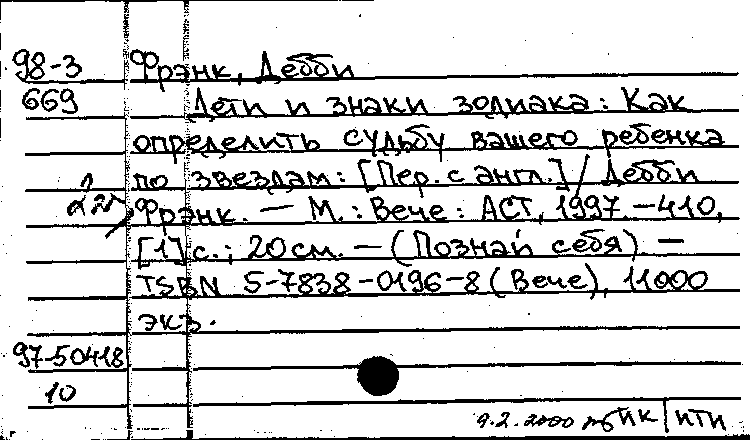 98-3 Фрэнк, Дебби
669 Дети и знаки зодиака: Как
определить судьбу вашего ребенка
по звездам: [Пер. с англ.] / Дебби
Фрэнк. — М.: Вече: АСТ, 1997. — 410,
[1] с.; 20 см. — (Познай себя). —
ISBN 5-7838-0196-8 (Вече), 11000
экз.
97-50418
10
9.2.2000 ИК | ИТИ